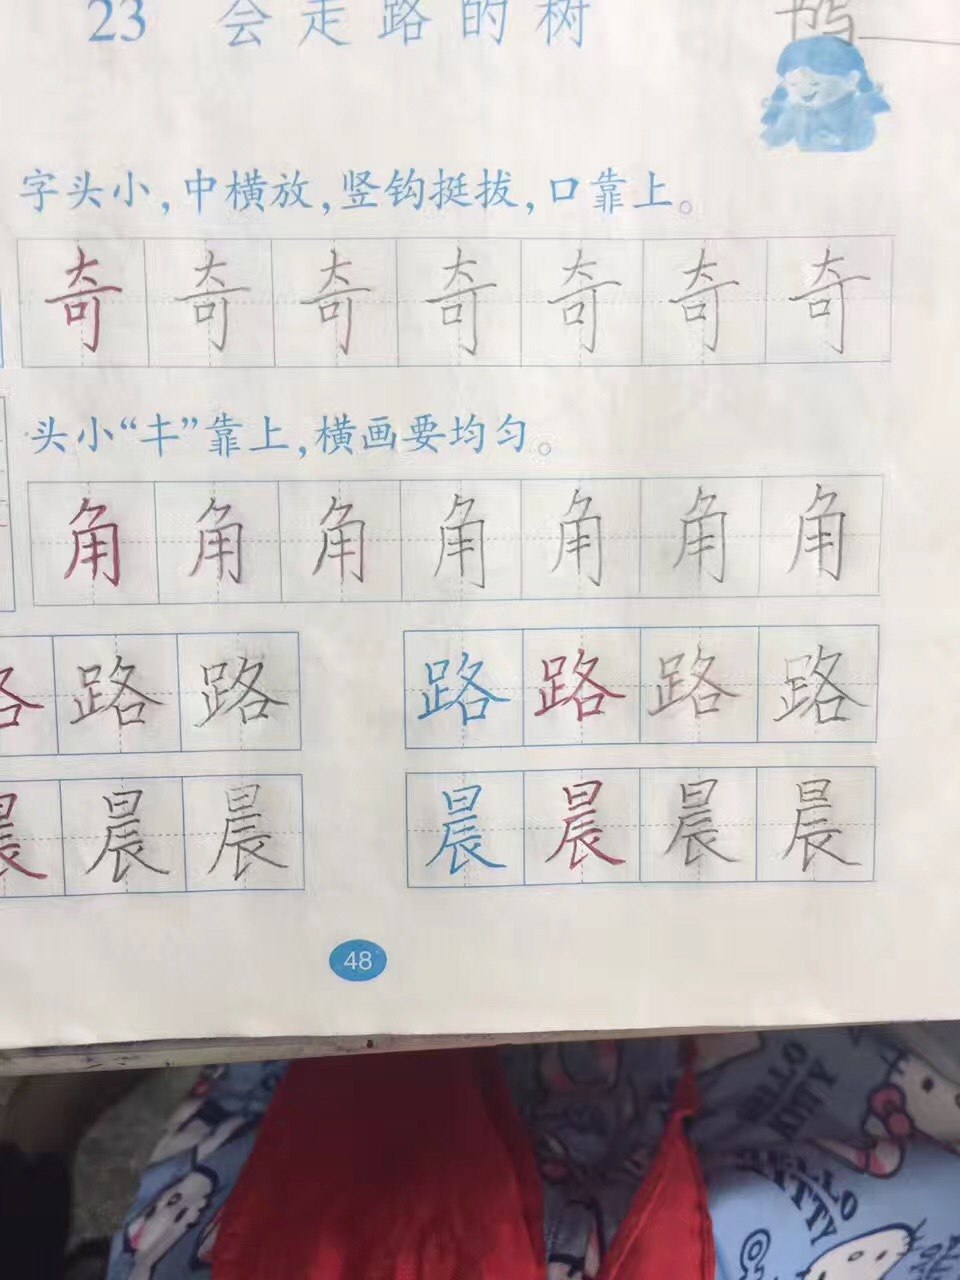 23 会走路的树
字头小，中横放，竖钩挺拔，口靠上。
奇 奇 奇 奇 奇 奇 奇
头小“キ”靠上，横画要均匀。
角 角 角 角 角 角 角
路 路 路 路 路 路 路
晨 晨 晨 晨 晨 晨 晨
48
HELLO KITTY
HELLO KITTY